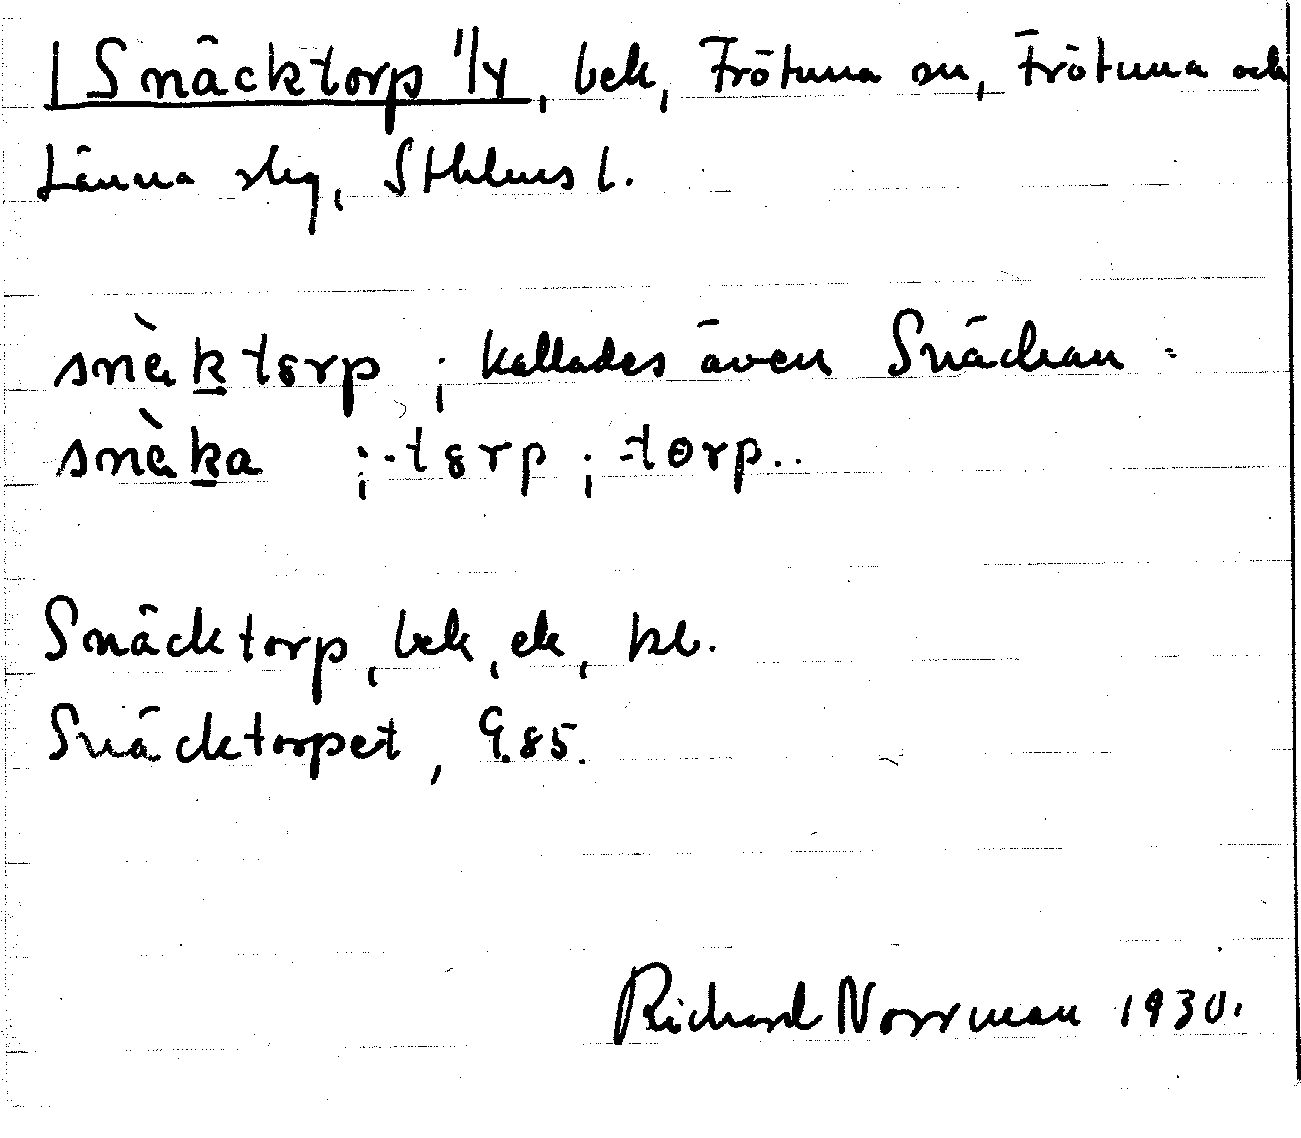 Snäcktorp 1/4, bek, Frötuna sn, Frötuna och
Länna slg, Sthlms l.
snɛ̀kto̱rp ; kallades även Snäckan :
snɛ̀ka ; -tɞrp ; -torp..
Snäcktorp, bek, ek, kb.
Snäcktorpet, G.85.
Richard Norrman 1930.